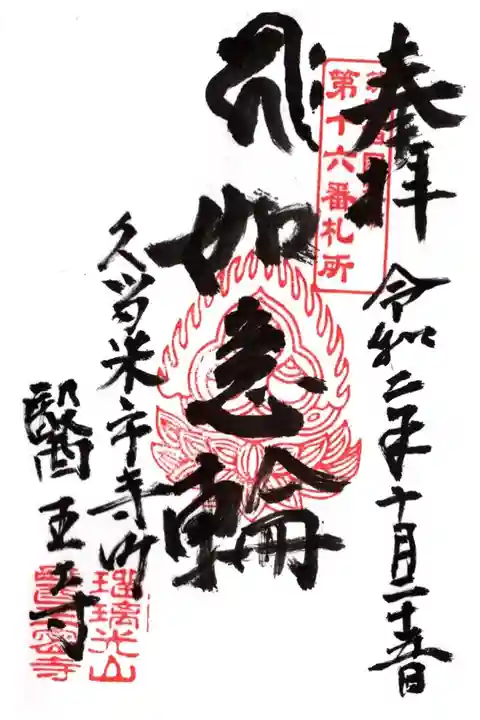 奉拝
第十六番札所
令和二年十月二十五日
如意輪
久留米市寺町
醫王寺
瑠璃光山
醫王密寺